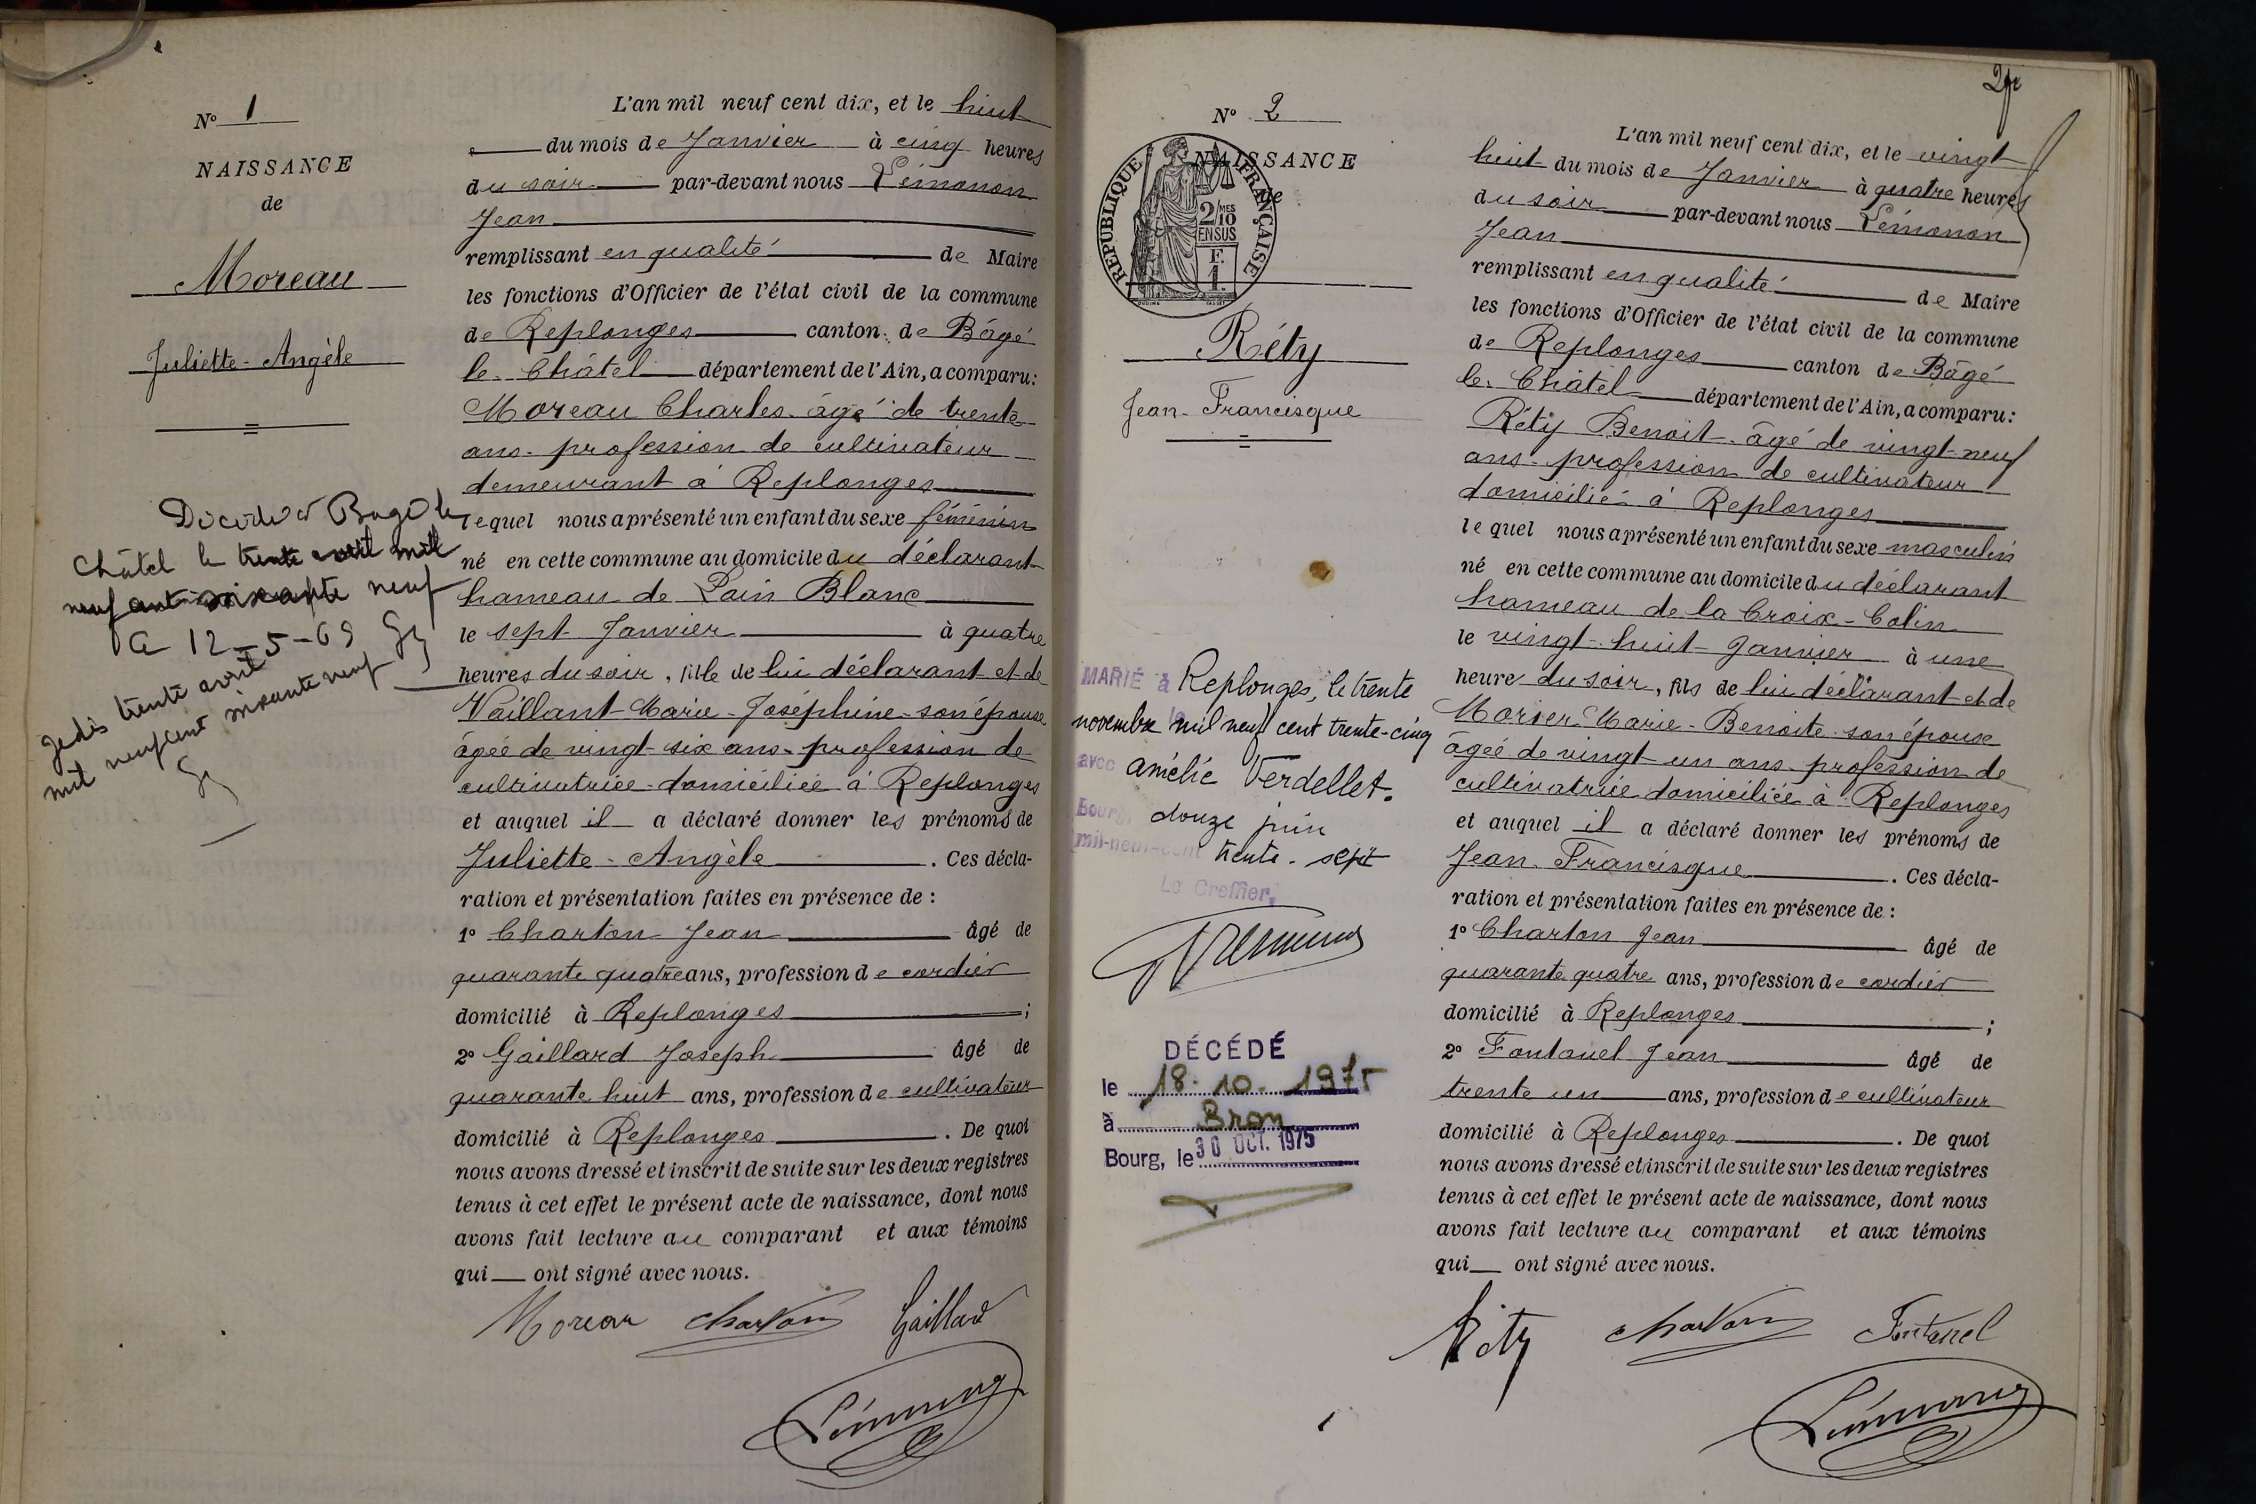 N° 1
NAISSANCE
de
Moreau
Juliette-Angèle
Décédée à Bagé le
Châtel le trente avril mil
neuf cent soixante neuf
12-5-69
trente avril
mil neuf cent soixante neuf
L'an mil neuf cent dix, et le huit
du mois de Janvier à cinq heures
du soir par-devant nous Lémonon
Jean
remplissant en qualité de Maire
les fonctions d'Officier de l'état civil de la commune
de Replonges canton de Bâgé
le Châtel département de l'Ain, a comparu:
Moreau Charles âgé de trente
ans profession de cultivateur
demeurant à Replonges
lequel nous a présenté un enfant du sexe féminin
né en cette commune au domicile du déclarant
hameau de Pain Blanc
le sept Janvier à quatre
heures du soir, fille de lui déclarant et de
Vaillant Marie-Joséphine son épouse
âgée de vingt-six ans profession de
cultivatrice domiciliée à Replonges
et auquel il a déclaré donner les prénoms de
Juliette-Angèle. Ces décla-
ration et présentation faites en présence de :
1° Charton Jean âgé de
quarante quatre ans, profession de cordier
domicilié à Replonges ;
2° Gaillard Joseph âgé de
quarante huit ans, profession de cultivateur
domicilié à Replonges. De quoi
nous avons dressé et inscrit de suite sur les deux registres
tenus à cet effet le présent acte de naissance, dont nous
avons fait lecture au comparant et aux témoins
qui ont signé avec nous.
Moreau Charton Gaillard
Lémonon
2
N° 2
NAISSANCE
de
REPUBLIQUE FRANÇAISE
2/10 MES
EN SUS
F.
1.
Réty
Jean-Francisque
MARIÉ à Replonges, le trente
novembre mil neuf cent trente-cinq
avec Amélie Verdellet.
Bourg, douze juin
mil-neuf-cent trente-sept
Le Greffier,
DÉCÉDÉ
le 18-10-1975
à Bron
Bourg, le 30 OCT. 1975
L'an mil neuf cent dix, et le vingt
huit du mois de Janvier à quatre heures
du soir par-devant nous Lémonon
Jean
remplissant en qualité de Maire
les fonctions d'Officier de l'état civil de la commune
de Replonges canton de Bâgé
le Châtel département de l'Ain, a comparu:
Réty Benoit âgé de vingt-neuf
ans profession de cultivateur
domicilié à Replonges
lequel nous a présenté un enfant du sexe masculin
né en cette commune au domicile du déclarant
hameau de la Croix-Colin
le vingt-huit Janvier à une
heure du soir, fils de lui déclarant et de
Morier Marie-Benoite son épouse
âgée de vingt un ans profession de
cultivatrice domiciliée à Replonges
et auquel il a déclaré donner les prénoms de
Jean Francisque. Ces décla-
ration et présentation faites en présence de :
1° Charton Jean âgé de
quarante quatre ans, profession de cordier
domicilié à Replonges ;
2° Fontanel Jean âgé de
trente un ans, profession de cultivateur
domicilié à Replonges. De quoi
nous avons dressé et inscrit de suite sur les deux registres
tenus à cet effet le présent acte de naissance, dont nous
avons fait lecture au comparant et aux témoins
qui ont signé avec nous.
Réty Charton Fontanel
Lémonon